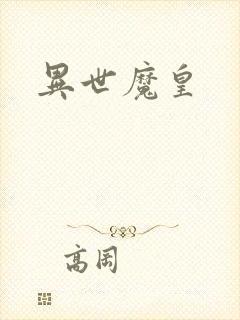 異世魔皇
高周